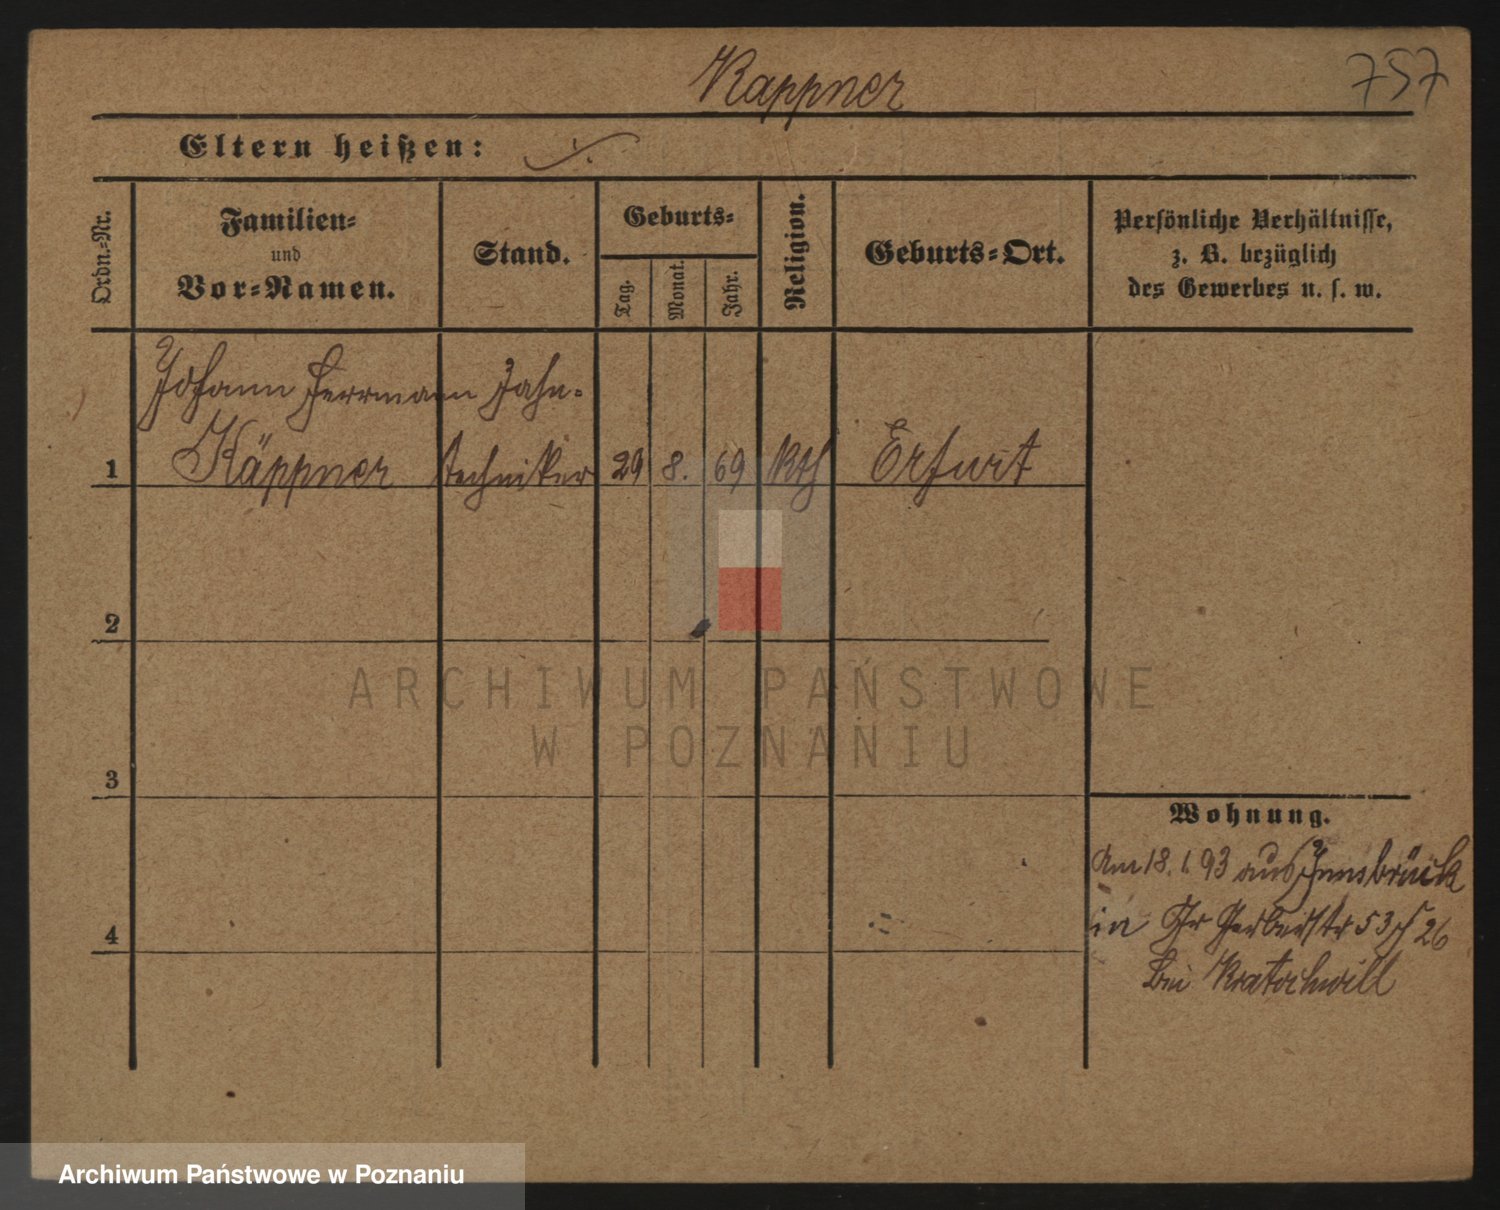 Kappner
757
Eltern heißen: ./.
Ordn.=Nr.
Familien=
und
Vor=Namen.
Stand.
Geburts=
Tag.
Monat.
Jahr.
Religion.
Geburts=Ort.
Persönliche Verhältnisse,
z. B. bezüglich
des Gewerbes u. s. w.
Johann Herrmann Zahn-
1 Käppner techniker 29 8. 69 Kth Erfurt
2
ARCHIWUM PAŃSTWOWE
W POZNANIU
3
Wohnung.
Am 18. 1. 93 aus Innsbrück
in Gr Gerberstr 53 26
4
bei Kratochwill
Archiwum Państwowe w Poznaniu